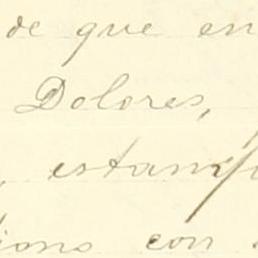 de que en
Dolores,
, estamp
ions con